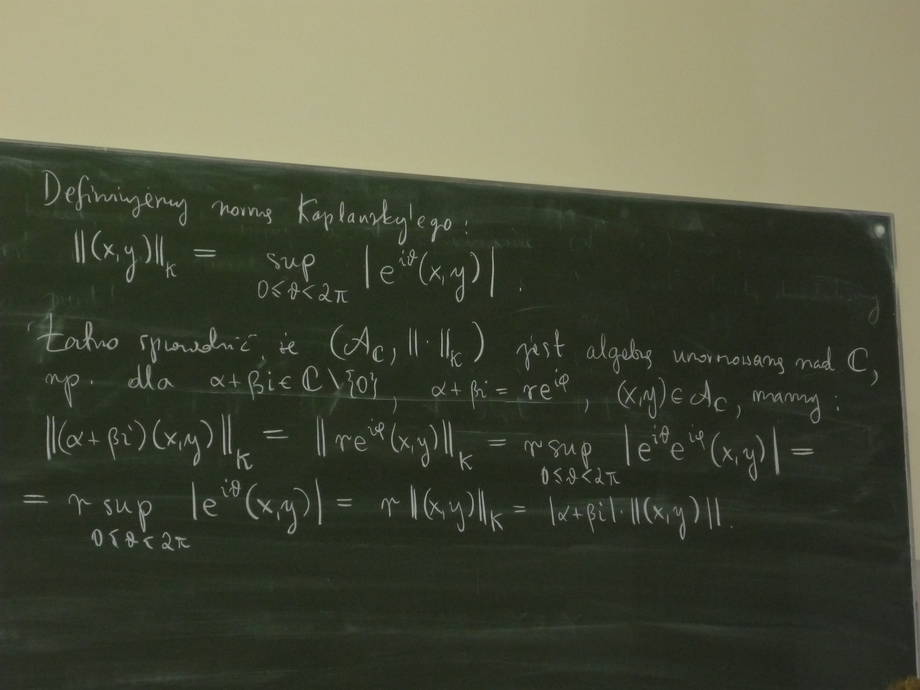 Definiujemy normę Kaplansky'ego:
‖(x,y)‖_K = sup_{0≤ϑ<2π} |e^{iϑ}(x,y)|.
Łatwo sprawdzić, że (𝒜_ℂ, ‖·‖_K) jest algebrą unormowaną nad ℂ,
np. dla α+βi ∈ ℂ∖{0}, α+βi = re^{iφ}, (x,y) ∈ 𝒜_ℂ, mamy:
‖(α+βi)(x,y)‖_K = ‖re^{iφ}(x,y)‖_K = r sup_{0≤ϑ<2π} |e^{iϑ}e^{iφ}(x,y)| =
= r sup_{0≤ϑ<2π} |e^{iϑ}(x,y)| = r‖(x,y)‖_K = |α+βi|·‖(x,y)‖.